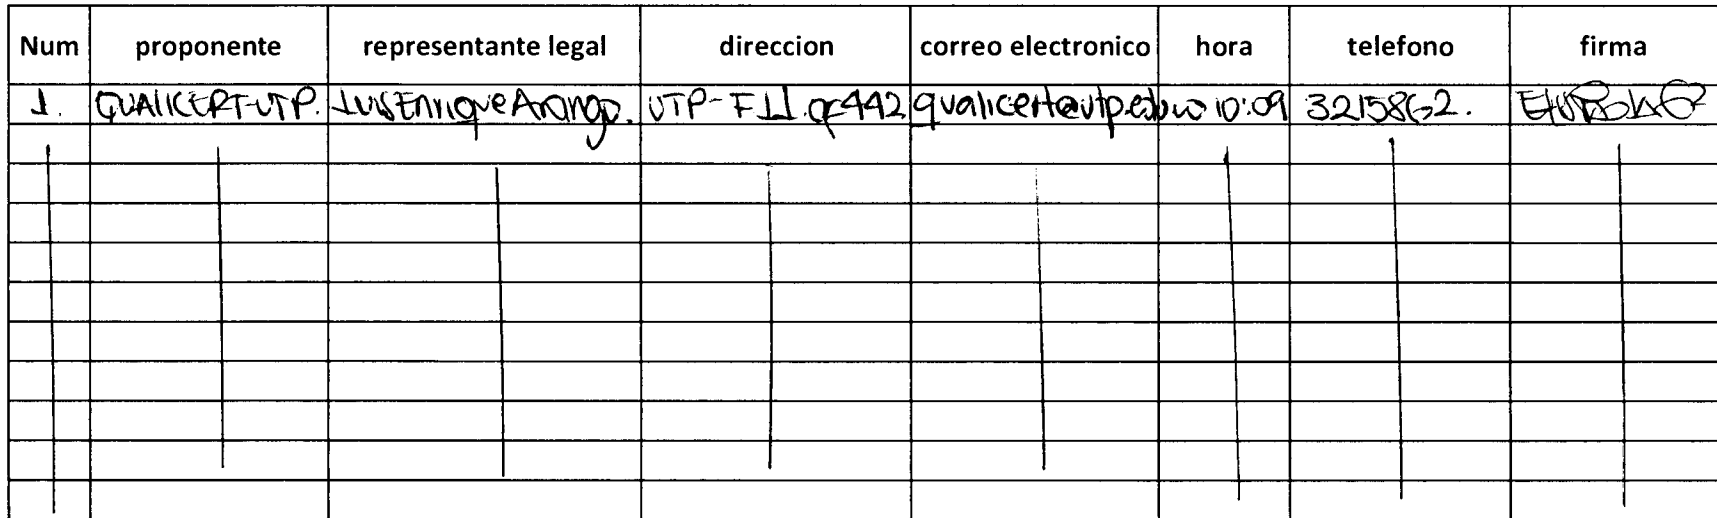 Num proponente representante legal direccion correo electronico hora telefono firma
1. QUALICERT-UTP. Luis Enrique Arango. UTP-F11.of442 10:09